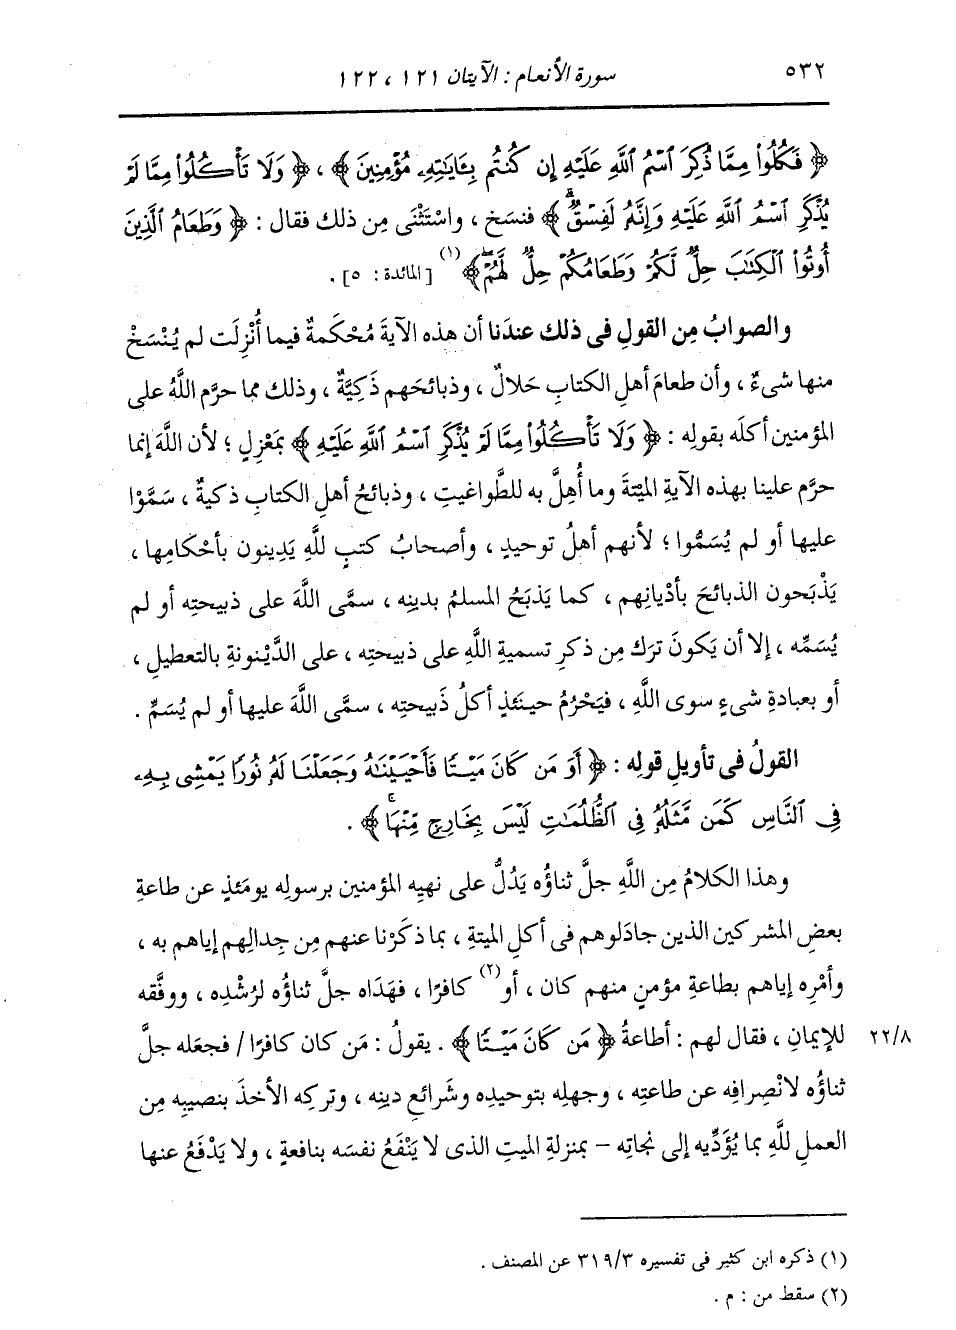 ٥٣٢ سورة الأنعام : الآيتان ١٢١ ، ١٢٢
﴿ فَكُلُوا۟ مِمَّا ذُكِرَ ٱسْمُ ٱللَّهِ عَلَيْهِ إِن كُنتُم بِـَٔايَـٰتِهِۦ مُؤْمِنِينَ ﴾ ، ﴿ وَلَا تَأْكُلُوا۟ مِمَّا لَمْ
يُذْكَرِ ٱسْمُ ٱللَّهِ عَلَيْهِ وَإِنَّهُۥ لَفِسْقٌۗ ﴾ فنسَخ ، واسْتَثْنَى مِن ذلك فقال : ﴿ وَطَعَامُ ٱلَّذِينَ
أُوتُوا۟ ٱلْكِتَـٰبَ حِلٌّ لَّكُمْ وَطَعَامُكُمْ حِلٌّ لَّهُمْۖ ﴾ (١) [ المائدة : ٥] .
والصوابُ مِن القولِ فى ذلك عندَنا أن هذه الآيةَ مُحْكَمةٌ فيما أُنْزِلَت لم يُنْسَخْ
منها شىءٌ ، وأن طعامَ أهلِ الكتابِ حَلالٌ ، وذبائحَهم ذَكِيَّةٌ ، وذلك مما حرَّم اللَّهُ على
المؤمنين أكلَه بقولِه : ﴿ وَلَا تَأْكُلُوا۟ مِمَّا لَمْ يُذْكَرِ ٱسْمُ ٱللَّهِ عَلَيْهِ ﴾ بمَعْزِلٍ ؛ لأن اللَّهَ إنما
حرَّم علينا بهذه الآيةِ الميتةَ وما أُهِلَّ به للطَّواغيتِ ، وذبائحُ أهلِ الكتابِ ذكيةٌ ، سَمَّوْا
عليها أو لم يُسَمُّوا ؛ لأنهم أهلُ توحيدٍ ، وأصحابُ كتبٍ للَّهِ يَدِينون بأحْكامِها ،
يَذْبَحون الذبائحَ بأدْيانِهم ، كما يَذبَحُ المسلمُ بدينِه ، سمَّى اللَّهَ على ذبيحتِه أو لم
يُسَمِّه ، إلا أن يَكونَ ترَك مِن ذكرِ تسميةِ اللَّهِ على ذبيحتِه ، على الدَّيْنونةِ بالتعطيلِ ،
أو بعبادةِ شىءٍ سوى اللَّهِ ، فيَحْرُمُ حينَئذٍ أكلُ ذَبيحتِه ، سمَّى اللَّهَ عليها أو لم يُسَمِّ .
القولُ فى تأويلِ قولِه : ﴿ أَوَ مَن كَانَ مَيْتًا فَأَحْيَيْنَـٰهُ وَجَعَلْنَا لَهُۥ نُورًا يَمْشِى بِهِۦ
فِى ٱلنَّاسِ كَمَن مَّثَلُهُۥ فِى ٱلظُّلُمَـٰتِ لَيْسَ بِخَارِجٍ مِّنْهَاۚ ﴾ .
وهذا الكلامُ مِن اللَّهِ جلَّ ثناؤُه يَدُلُّ على نهيِه المؤمنين برسولِه يومَئذٍ عن طاعةِ
بعضِ المشركين الذين جادَلوهم فى أكلِ الميتةِ ، بما ذكَرْنا عنهم مِن جِدالِهم إياهم به ،
وأمْرِه إياهم بطاعةِ مؤمنٍ منهم كان ، أو(٢) كافرًا ، فهَدَاه جلَّ ثناؤُه لرُشْدِه ، ووفَّقه
للإيمانِ ، فقال لهم : أطاعةُ ﴿ مَن كَانَ مَيْتًا ﴾ . يقولُ : مَن كان كافرًا / فجعَله جلَّ ٢٢/٨
ثناؤُه لانْصِرافِه عن طاعتِه ، وجهلِه بتوحيدِه وشَرائعِ دينِه ، وتركِه الأخذَ بنصيبِه مِن
العملِ للَّهِ بما يُؤَدِّيه إلى نجاتِه – بمنزلةِ الميتِ الذى لا يَنْفَعُ نفسَه بنافعةٍ ، ولا يَدْفَعُ عنها
(١) ذكره ابن كثير فى تفسيره ٣١٩/٣ عن المصنف .
(٢) سقط من : م .